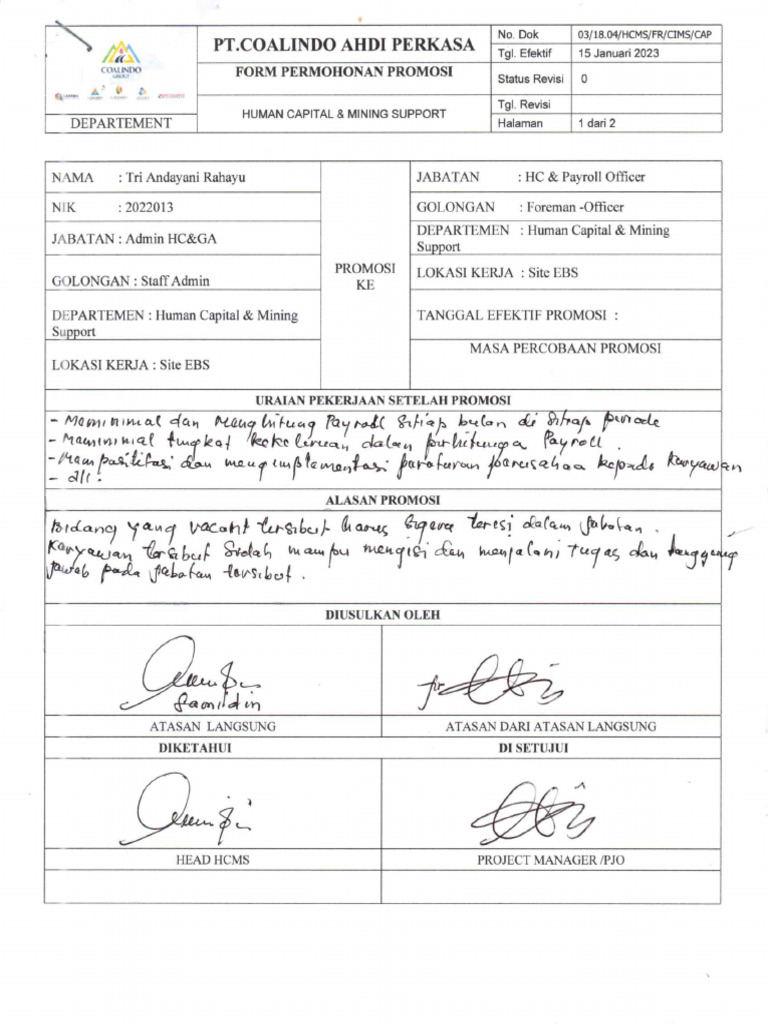 COALINDO
GROUP
DEPARTEMENT
PT.COALINDO AHDI PERKASA
FORM PERMOHONAN PROMOSI
HUMAN CAPITAL & MINING SUPPORT
No. Dok 03/18.04/HCMS/FR/CIMS/CAP
Tgl. Efektif 15 Januari 2023
Status Revisi 0
Tgl. Revisi
Halaman 1 dari 2
NAMA : Tri Andayani Rahayu
NIK : 2022013
JABATAN : Admin HC&GA
GOLONGAN : Staff Admin
DEPARTEMEN : Human Capital & Mining
Support
LOKASI KERJA : Site EBS
PROMOSI
KE
JABATAN : HC & Payroll Officer
GOLONGAN : Foreman -Officer
DEPARTEMEN : Human Capital & Mining
Support
LOKASI KERJA : Site EBS
TANGGAL EFEKTIF PROMOSI :
MASA PERCOBAAN PROMOSI
URAIAN PEKERJAAN SETELAH PROMOSI
- Maminimal dan Menghitung Payroll Sitiap bulan di Sitiap piriode
- Maminimial tingkat kekeliruan dalam pirhitunga Payroll.
- Mampasilitasi dan mengimplementasi paraturan parusahaa kepada Karyawan
- dll.
ALASAN PROMOSI
Bidang yang vacant tersibut harus Sigera terisi dalam Jabatan.
Karyawan tersibut Sudah mampu mengisi dan menjalani tugas dan tanggung
Jawab pada Jabatan tersibut.
DIUSULKAN OLEH
Samildin
ATASAN LANGSUNG
ATASAN DARI ATASAN LANGSUNG
DIKETAHUI
DI SETUJUI
HEAD HCMS
PROJECT MANAGER /PJO